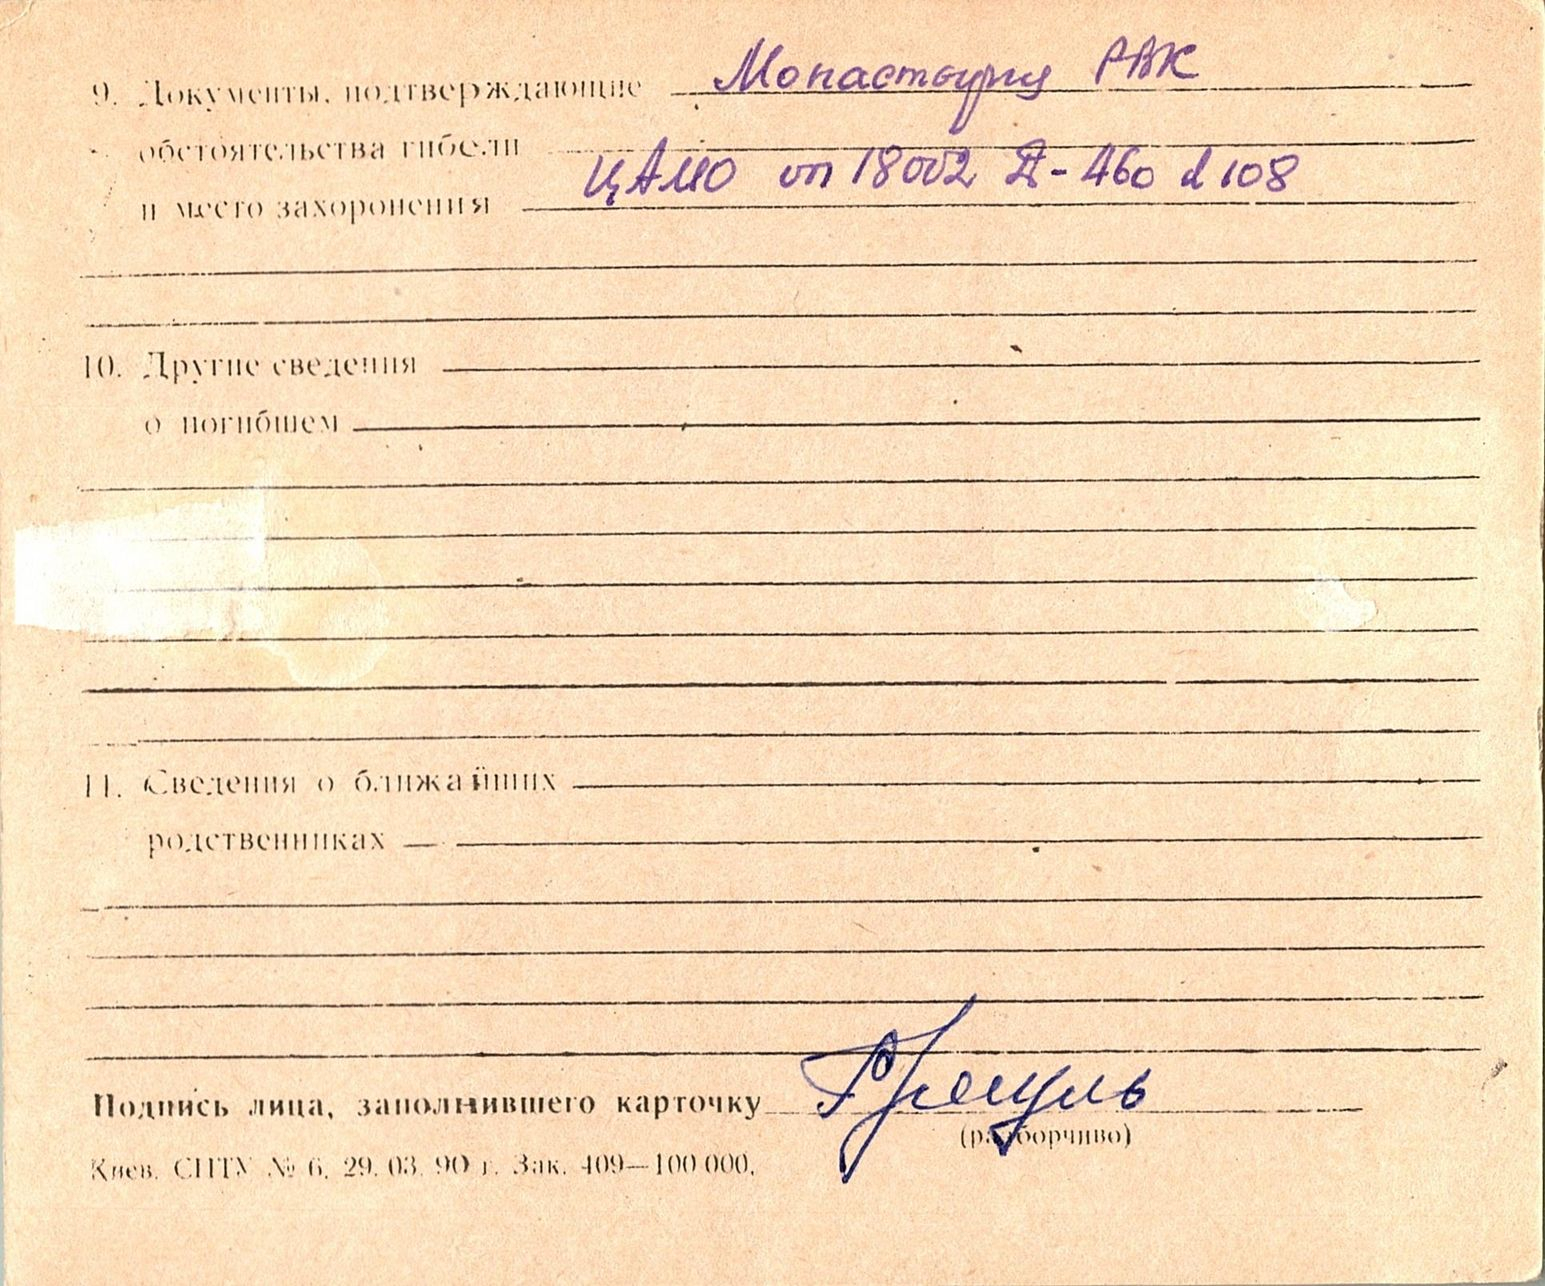 9. Документы, подтверждающие РВК
обстоятельства гибели
и место захоронения ЦАМО оп 18002 Д-460 л 108
10. Другие сведения
о погибшем
11. Сведения о ближайших
родственниках
Подпись лица, заполнившего карточку
(разборчиво)
Киев. СПТУ № 6, 29. 03. 90 г. Зак. 409—100 000.